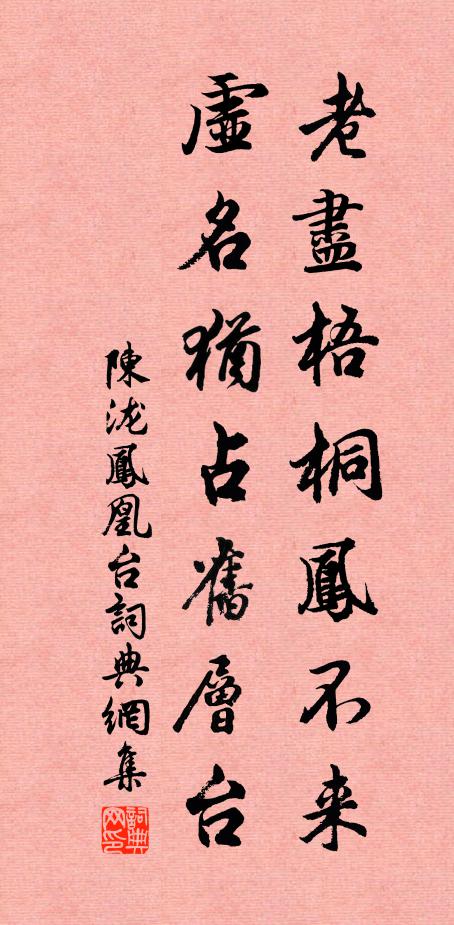 老盡梧桐鳳不来
虛名猶占舊層台
陳泷鳳凰台詞典網集
詞典
网印